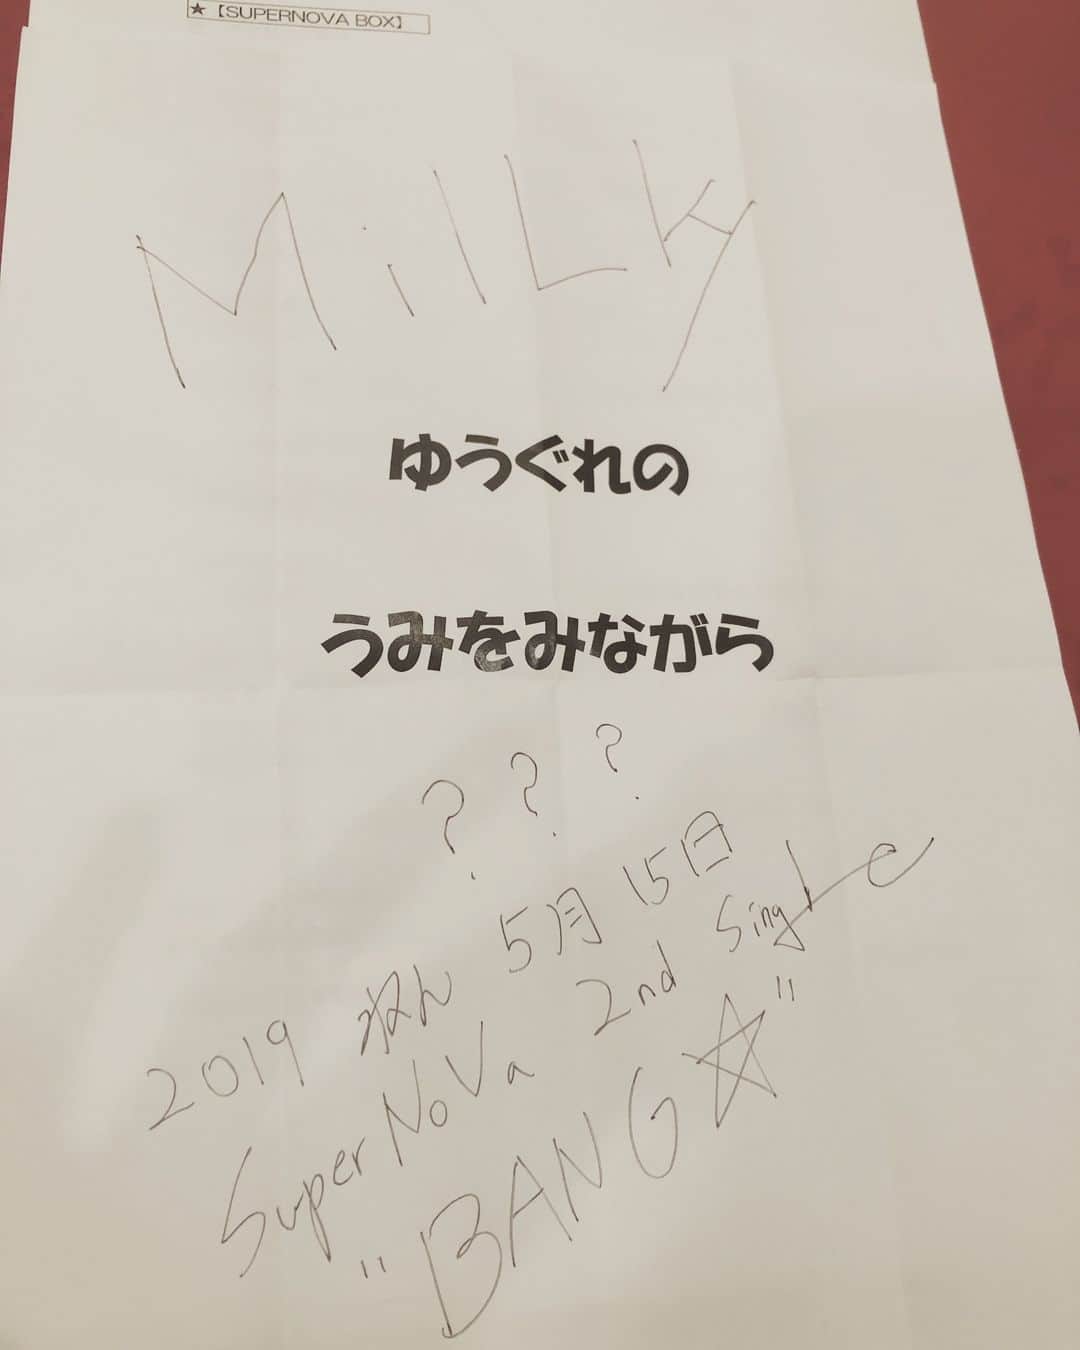 ★【SUPERNOVA BOX】
MilLky
ゆうぐれの
うみをみながら
???
2019 ねん 5月 15日
SuperNoVa 2nd SingLe
"BANG☆"